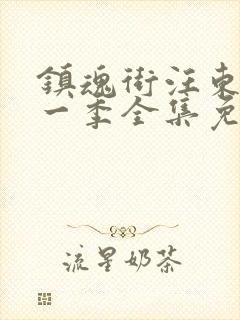 鎮魂街汪東
一季全集免
流星奶茶